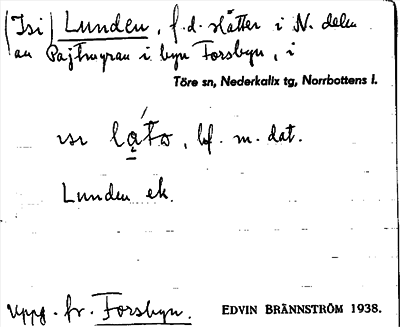 (Isi) Lunden, f.d. slåtter i N. delen
av Pajtmyran i byn Forsbyn, i
Töre sn, Nederkalix tg, Norrbottens l.
bf. m. dat.
Lunden ek.
Uppg. fr. Forsbyn. EDVIN BRÄNNSTRÖM 1938.